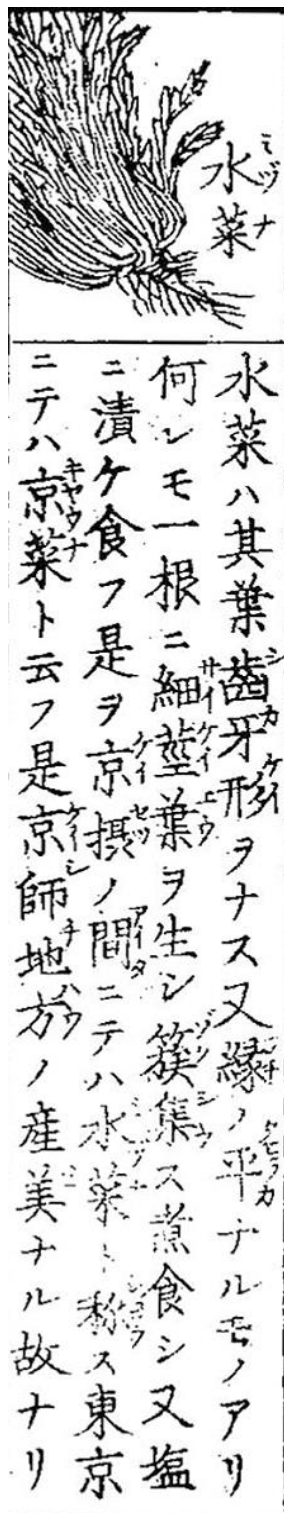 水菜
水菜ハ其葉齒牙形ヲナス又縁ノ平ナルモノアリ
何レモ一根ニ細莖葉ヲ生シ簇集ス煮食シ又塩
ニ漬ケ食フ是ヲ京摂ノ間ニテハ水菜ト称ス東京
ニテハ京菜ト云フ是京師地方ノ産美ナル故ナリ